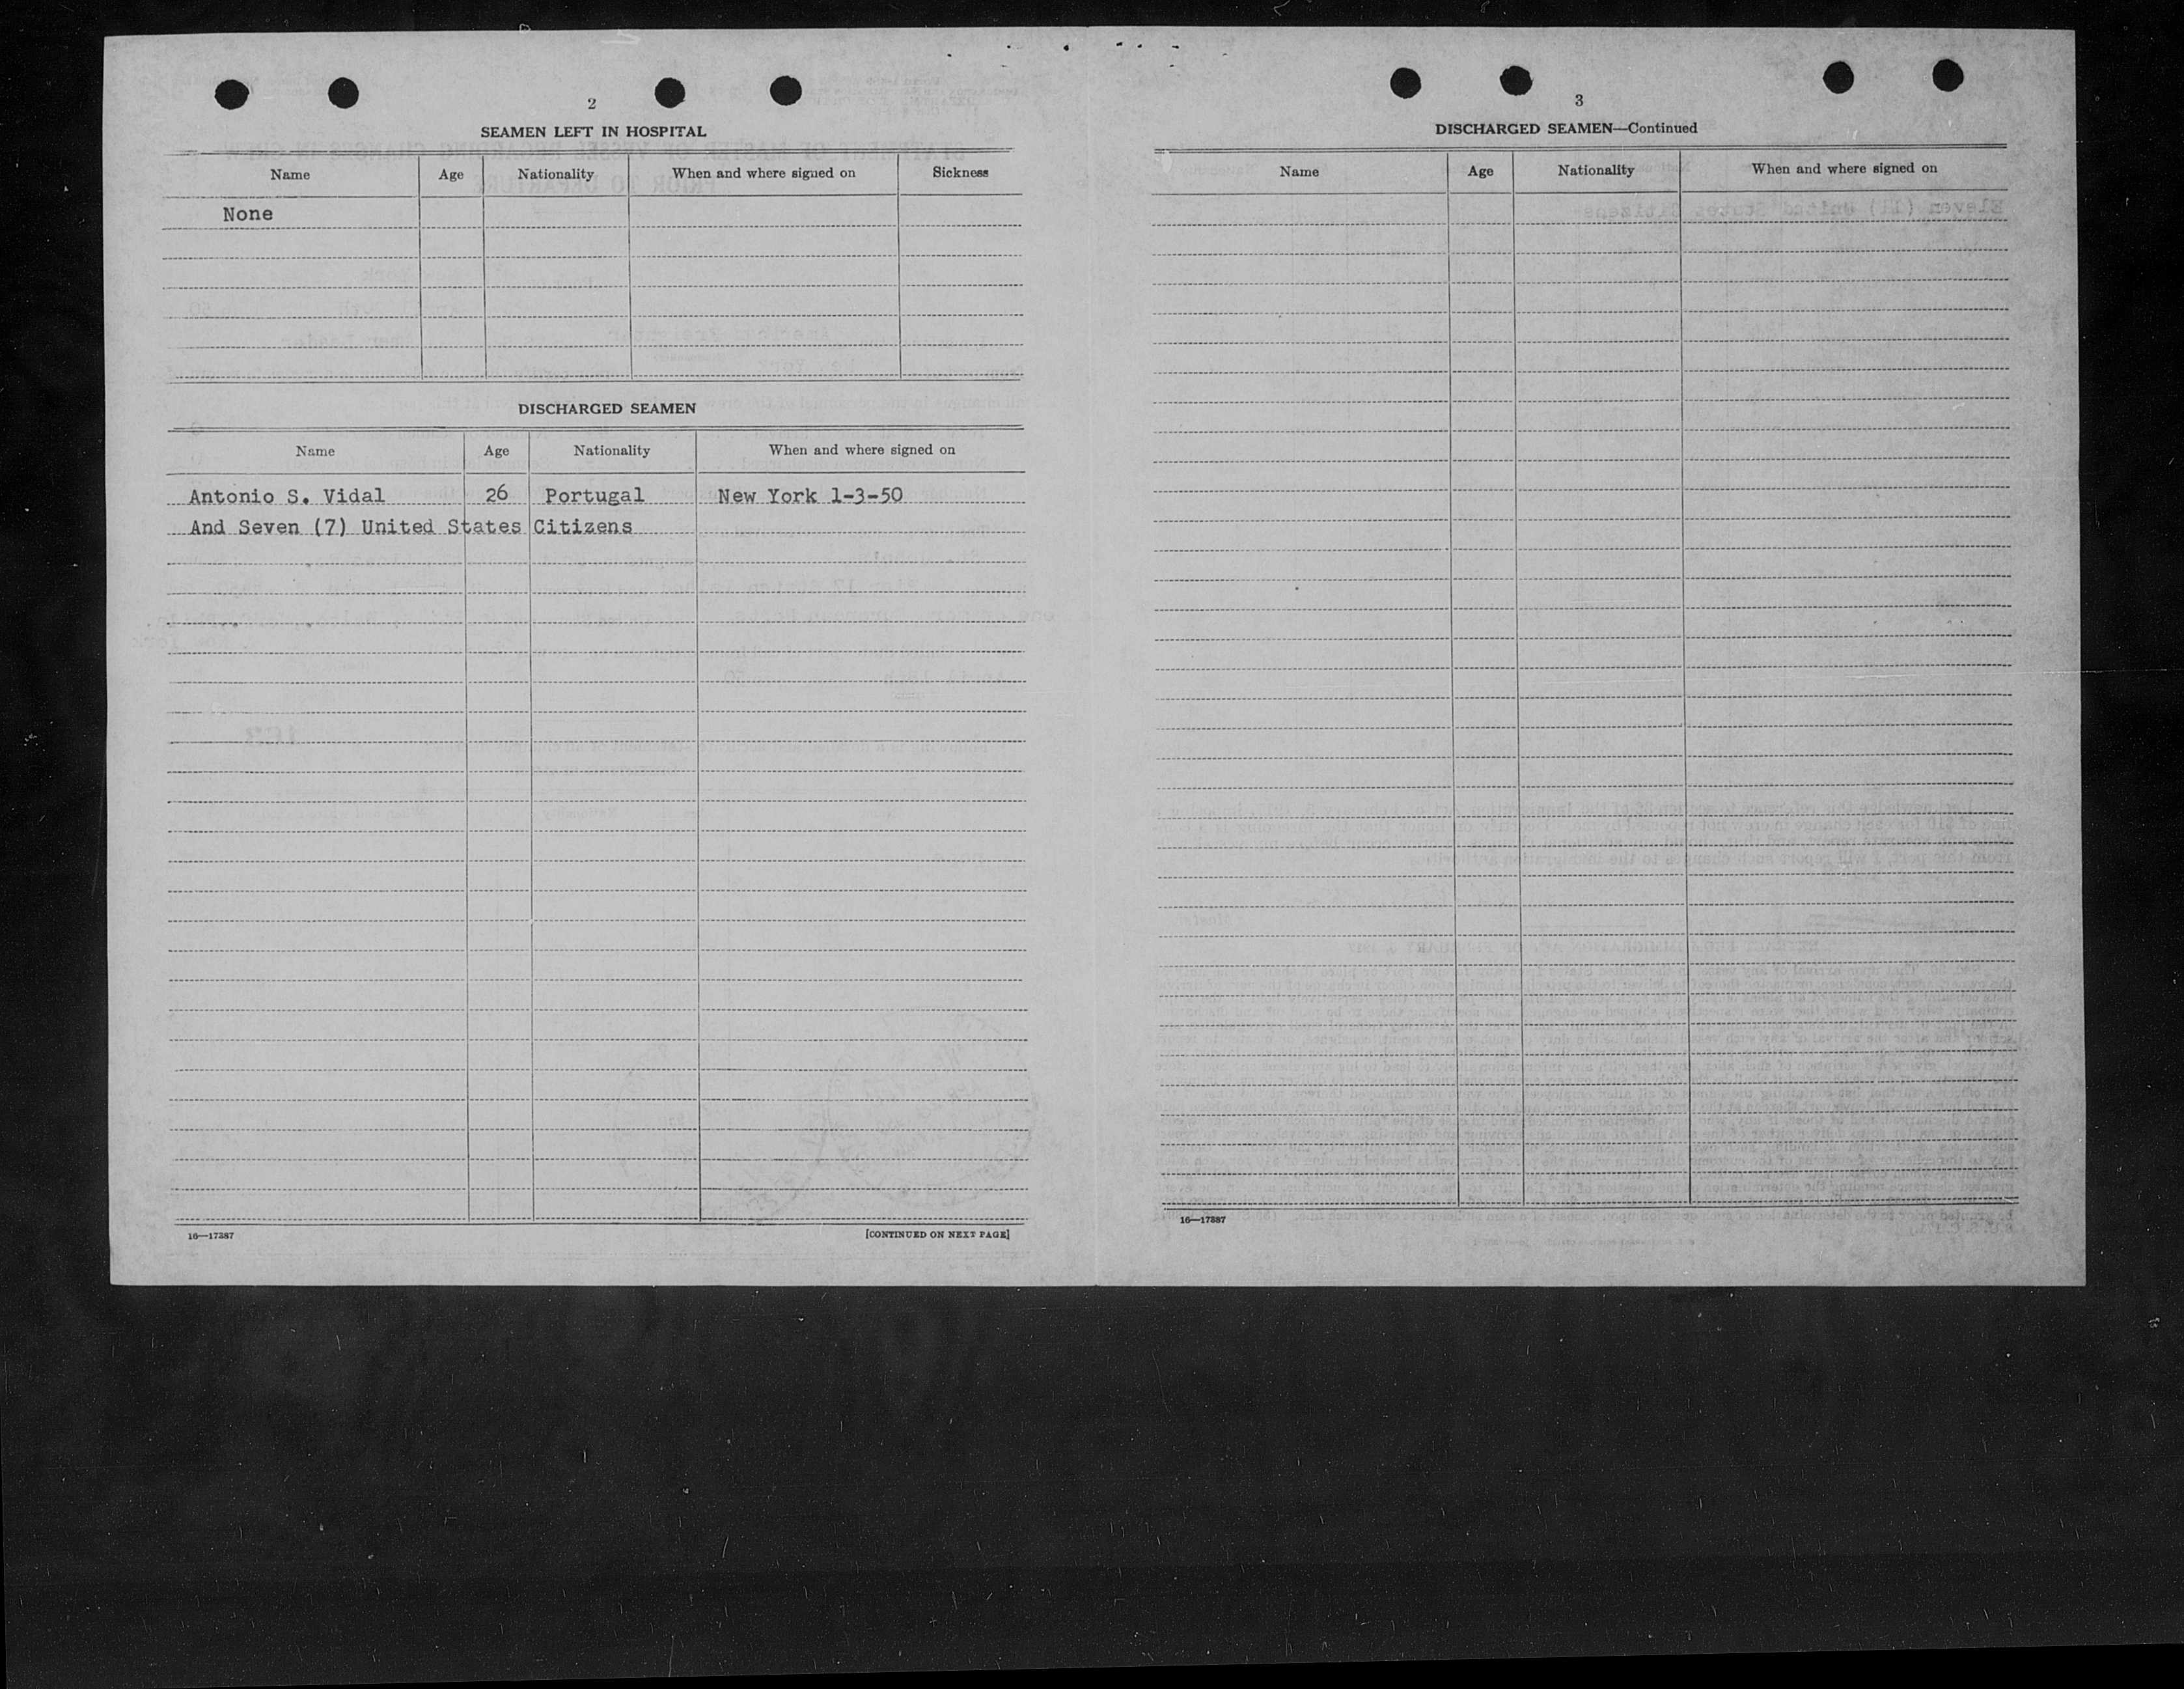 2
SEAMEN LEFT IN HOSPITAL
Name Age Nationality When and where signed on Sickness
None
DISCHARGED SEAMEN
Name Age Nationality When and where signed on
Antonio S. Vidal 26 Portugal New York 1-3-50
And Seven (7) United States Citizens
16—17387
[CONTINUED ON NEXT PAGE]
3
DISCHARGED SEAMEN—Continued
Name Age Nationality When and where signed on
16—17387